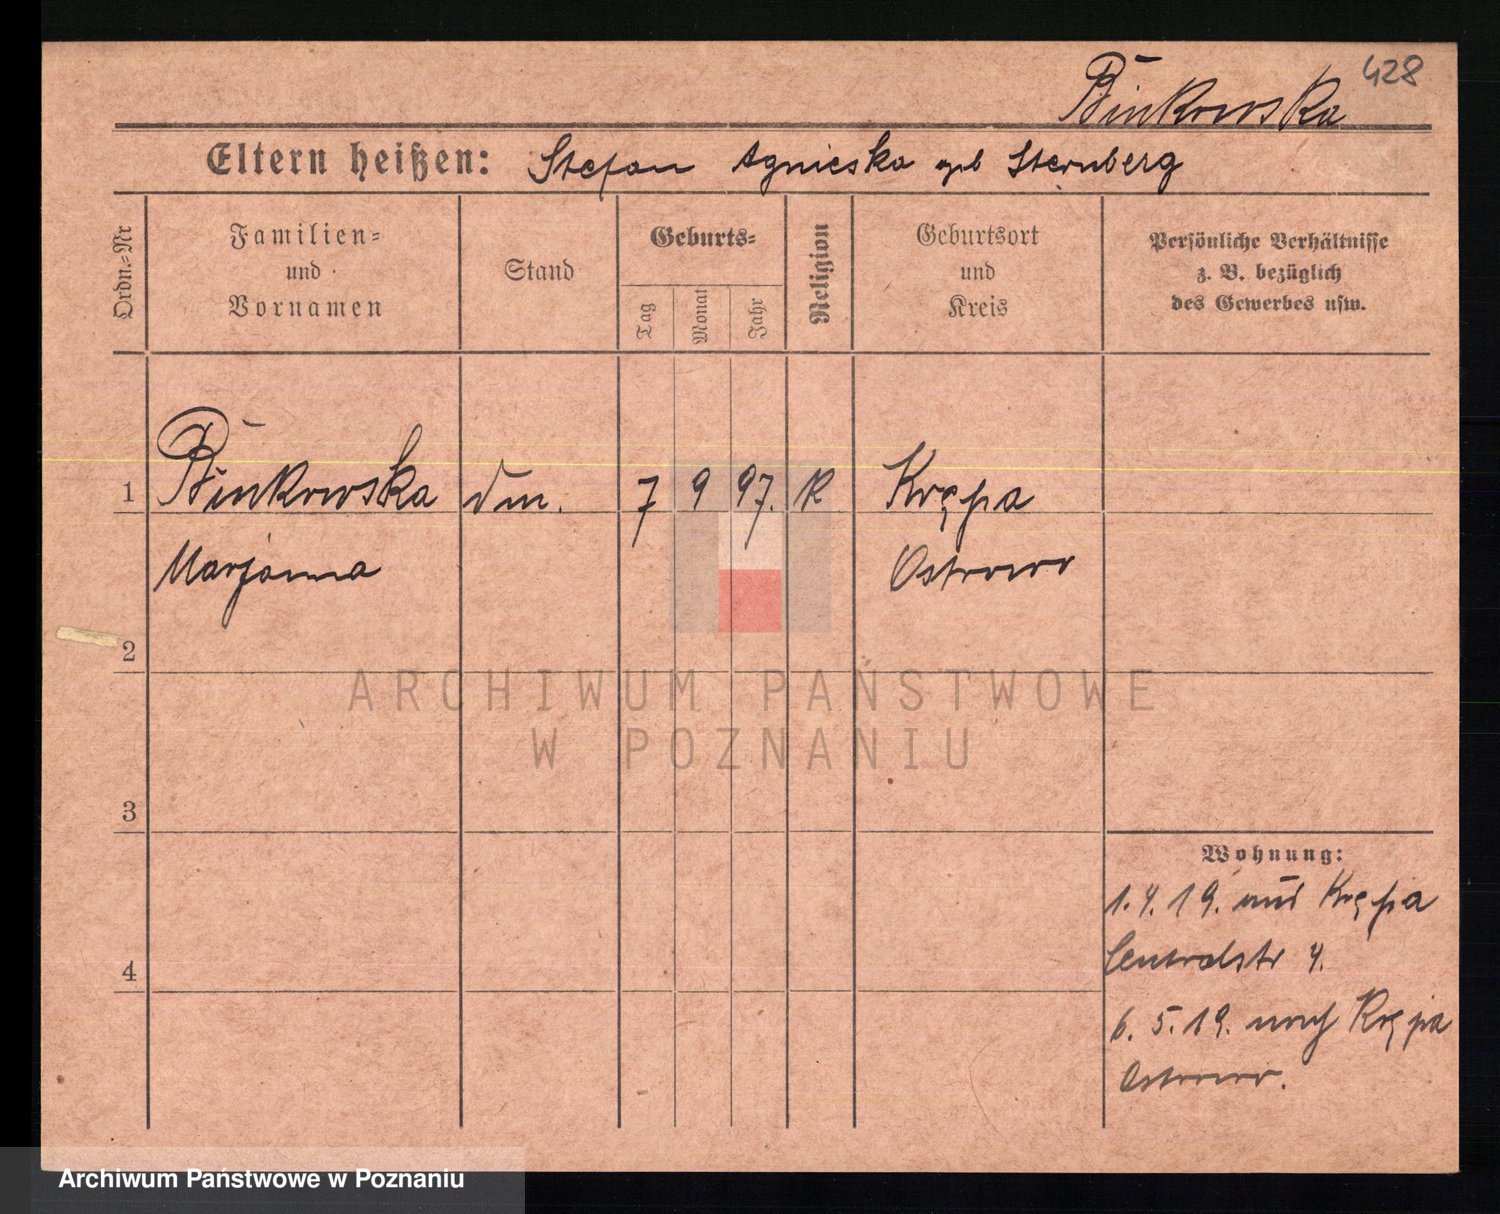 428
Binkowska
Eltern heißen: Stefan Agnieska geb Sternberg
Ordn.-Nr
Familien-
und
Vornamen
Stand
Geburts-
Tag
Monat
Jahr
Religion
Geburtsort
und
Kreis
Persönliche Verhältnisse
z. B. bezüglich
des Gewerbes usw.
1 Binkowska 7 9 97. K Krępa
Marjanna Ostrowo
2
ARCHIWUM PAŃSTWOWE
W POZNANIU
3
Wohnung:
1.4.19. aus Krępa
Centralstr 4.
4
6.5.19. nach Krępa
Ostrowo.
Archiwum Państwowe w Poznaniu